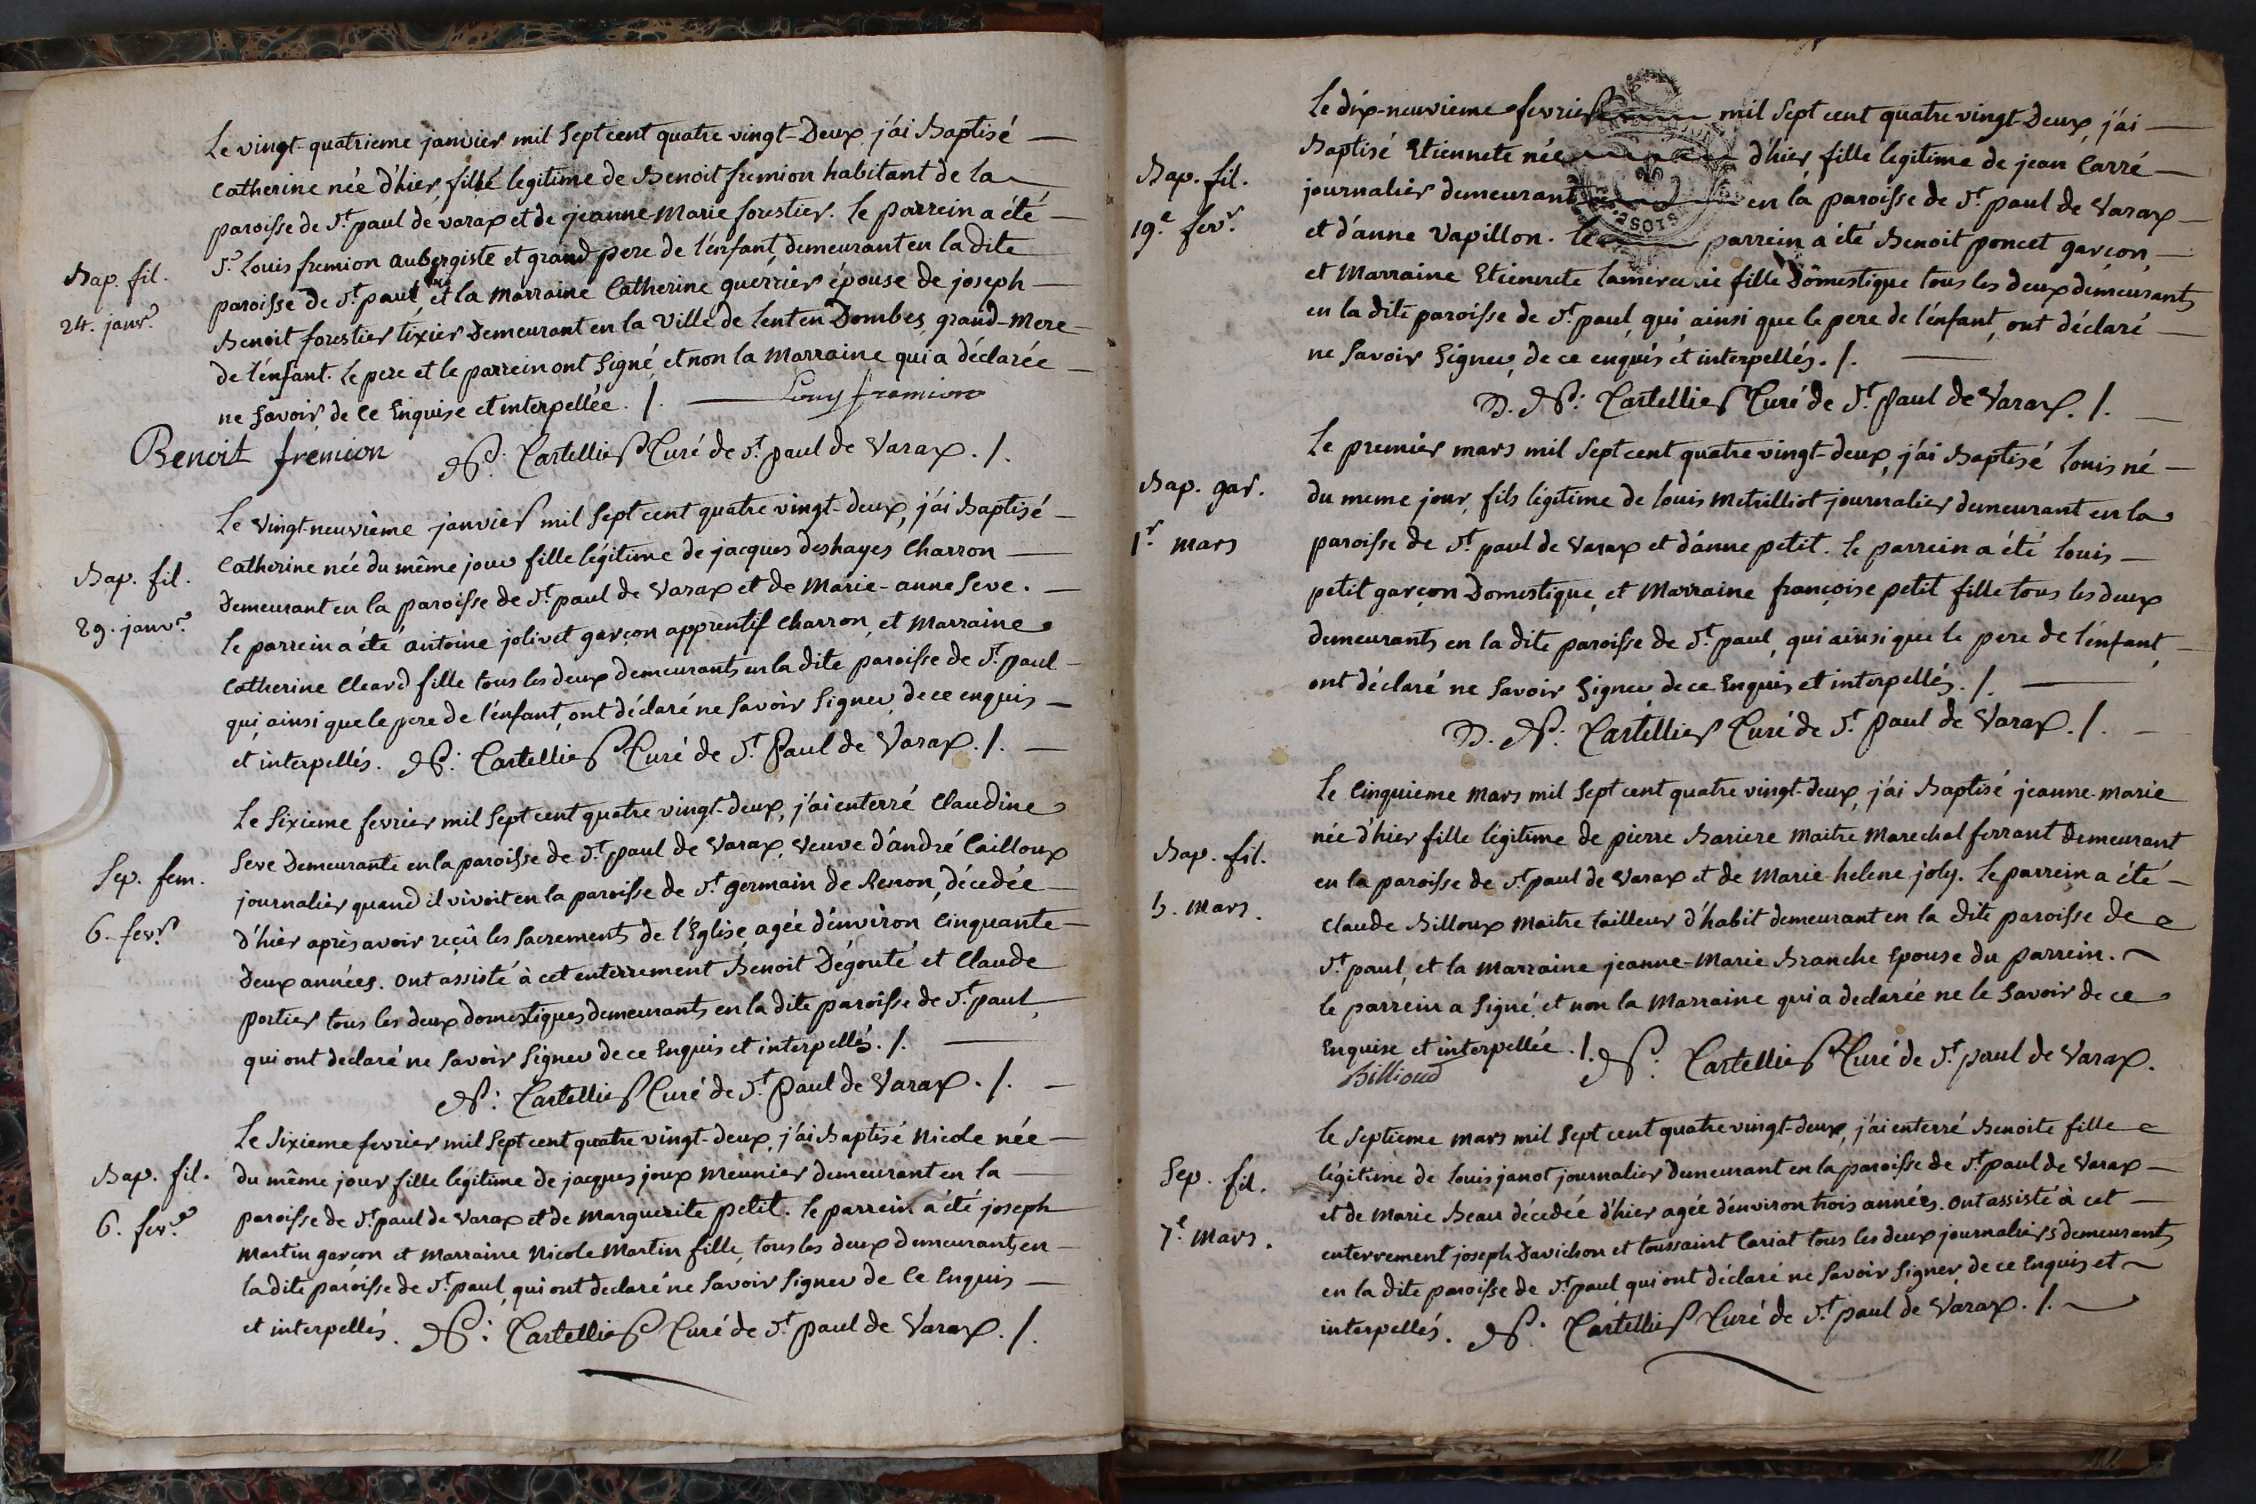 Le vingt-quatrieme janvier mil sept cent quatre vingt-Deux j'ai Baptisé
Catherine née d'hier, fille légitime de Benoit fremion habitant de la
paroisse de St. paul de varax et de jeanne-Marie forestier. le parrein a été
Sr. louis fremion aubergiste et grand pere de l'enfant, demeurant en la dite
Bap. fil.
24. janvr.
paroisse de St. paul, et la Marraine Catherine guerrier épouse de joseph
Benoit forestier tixier Demeurant en la Ville de lent en Dombes, grand-Mere
de l'enfant. le pere et le parrein ont signé, et non la Marraine qui a déclarée
ne savoir, de ce Enquise et interpellée. /. Louy fremion
Benoit fremion
N. Cartellier Curé de St. paul de Varax. /.
Le vingt-neuvième janvier mil sept cent quatre vingt-deux, j'ai Baptisé
Catherine née du même jour fille légitime de jacques deshayes Charron
Bap. fil.
29. janvr.
Demeurant en la paroisse de St. paul de Varax et de Marie-anne Seve.
le parrein a été antoine jolivet garçon apprentif Charron, et Marraine
Catherine Cleard fille tous les deux demeurants en la dite paroisse de St. paul
qui, ainsi que le pere de l'enfant, ont déclaré ne savoir signer, de ce enquis
et interpellés. N. Cartellier Curé de St. Paul de Varax. /.
Le Sixieme fevrier mil sept cent quatre vingt-deux, j'ai enterré Claudine
Seve Demeurante en la paroisse de St. paul de Varax, Veuve d'andré Cailloux
Sep. fem.
6. fevr.
journalier quand il vivoit en la paroisse de St. germain de Renon, décedée
d'hier après avoir reçû les sacrements de l'Eglise, agée d'environ Cinquante
Deux années. ont assisté à cet enterrement Benoit Dégouté et Claude
portier tous les deux domestiques demeurants en la dite paroisse de St. paul,
qui ont declaré ne savoir signer de ce Enquis et interpellés. /.
N. Cartellier Curé de St. Paul de Varax. /.
Le Sixieme fevrier mil sept cent quatre vingt-deux, j'ai Baptisé Nicole née
Bap. fil.
6. fevr.
du même jour fille légitime de jacques joux Meunier demeurant en la
paroisse de St. paul de Varax et de Marguerite petit. le parrein a été joseph
Martin garçon et Marraine Nicole Martin fille, tous les deux demeurants en
la dite paroisse de St. paul, qui ont declaré ne savoir signer de Ce Enquis
et interpellés. N. Cartellier Curé de St. paul de Varax. /.
Le dix-neuvieme fevrier mil sept cent quatre vingt-Deux, j'ai
Bap. fil.
19e. fevr.
Baptisé Etiennete née d'hier fille legitime de jean Carré
journalier demeurant en la paroisse de St. paul de Varax
et d'anne Vapillon. le parrein a été Benoit poncet garçon,
et Marraine Etiennete fille Domestique tous les deux demeurants
en la dite paroisse de St. paul, qui ainsi que le pere de l'enfant, ont déclaré
ne savoir signer, de ce enquis et interpellés. /.
D. N. Cartellier Curé de St. Paul de Varax. /.
Le premier mars mil sept cent quatre vingt-deux, j'ai Baptisé louis né
Bap. gar.
1r. mars
du meme jour, fils légitime de louis Metrilliot journalier demeurant en la
paroisse de St. paul de Varax et d'anne petit. le parrein a été louis
petit garçon Domestique, et Marraine françoise petit fille tous les deux
demeurants en la dite paroisse de St. paul, qui ainsi que le pere de l'enfant,
ont déclaré ne savoir signer, de ce Enquis et interpellés. /.
D. N. Cartellier Curé de St. Paul de Varax. /.
Le Cinquieme Mars mil sept cent quatre vingt-deux, j'ai Baptisé jeanne-marie
née d'hier fille légitime de pierre Bariere Maitre Marechal ferrant Demeurant
Bap. fil.
5. Mars.
en la paroisse de St. paul de Varax et de Marie helene joly. le parrein a été
Claude Billoux Maitre tailleur d'habit demeurant en la dite paroisse de
St. paul, et la Marraine jeanne-Marie Branche Epouse du parrein.
le parrein a signé, et non la Marraine qui a declarée ne le savoir de ce
Enquise et interpellée. /. N. Cartellier Curé de St. paul de Varax.
Billioud
Le Septieme Mars mil sept cent quatre vingt-deux, j'ai enterré Benoite fille
Sep. fil.
7e. Mars.
légitime de louis janot journalier Demeurant en la paroisse de St. paul de Varax
et de Marie Beau décedée d'hier agée d'environ trois années. ont assisté à cet
enterrement joseph Davichon et toussaint Cariat tous les deux journaliers demeurants
en la dite paroisse de St. paul qui ont déclaré ne savoir signer, de ce Enquis et
interpellés. N. Cartellier Curé de St. paul de Varax. /.